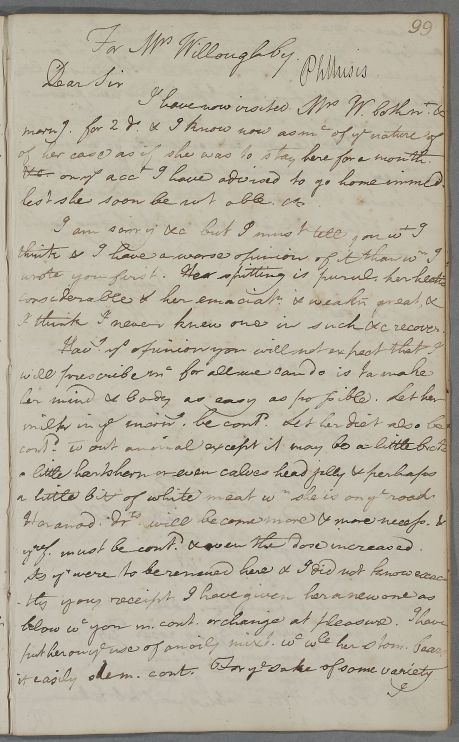 99
For Mrs Willoughby
Phthisis
Dear Sir
I have now visited Mrs W. both nt. &
marng. for 2 d. & I know now as mc of ye nature
of her case as if she was to stay here for a month.
on ys acct I have advised to go home immed.
lest she soon be not able &c.
I am sorry &c but I must tell you wt I
think & I have a worse opinion of it than wn I
wrote you first. Her spitting is purul. her hectic
considerable & her emaciatn & weakn. great, &
I think I never knew one in such &c recover.
Havg. ys opinion you will not expect that I
will prescribe mc for all we can do is to make
her mind & body as easy as possible. Let her
milk in ye morng. be contd. Let her diet also be
contd. wout animal except it may be a little broth
a little hartshorn or even calves head jelly & perhaps
a little bit of white meat wn she is on ye road
Her anod. drts. will become more & more necess. &
yrf. must be contd. & even the dose increased.
As ys were to be renewed here & I did not know exac
tly your receipt I have given her a new one as
below wc you m. cont. or change at pleasure. I have
put her on ye use of an oily mixt. wc wle her stom. bears
it easily she m. cont. For ye sake of some variety